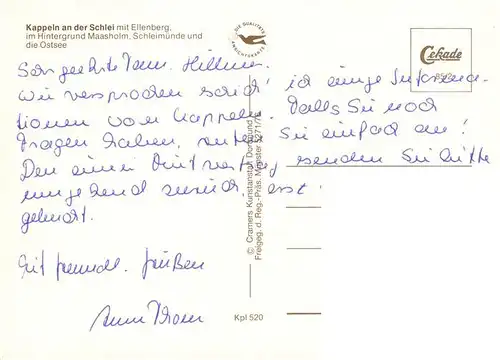 Kappeln an der Schlei mit Ellenberg,
im Hintergrund Maasholm, Schleimünde und
die Ostsee
DIE QUALITÄTS
ANSICHTSKARTE
Cekade
Sehr geehrte Fam.
wie versprochen ich einige Informa-
tionen von Kappeln. Falls Sie noch
Fragen haben, rufen Sie einfach an!
Den einen senden Sie bitte
umgehend zurück, erst
gebucht.
Mit freundl. Grüßen
© Cramers Kunstanstalt Dortmund
Freigeg. d. Reg.-Präs. Münster 5271/71
Kpl 520